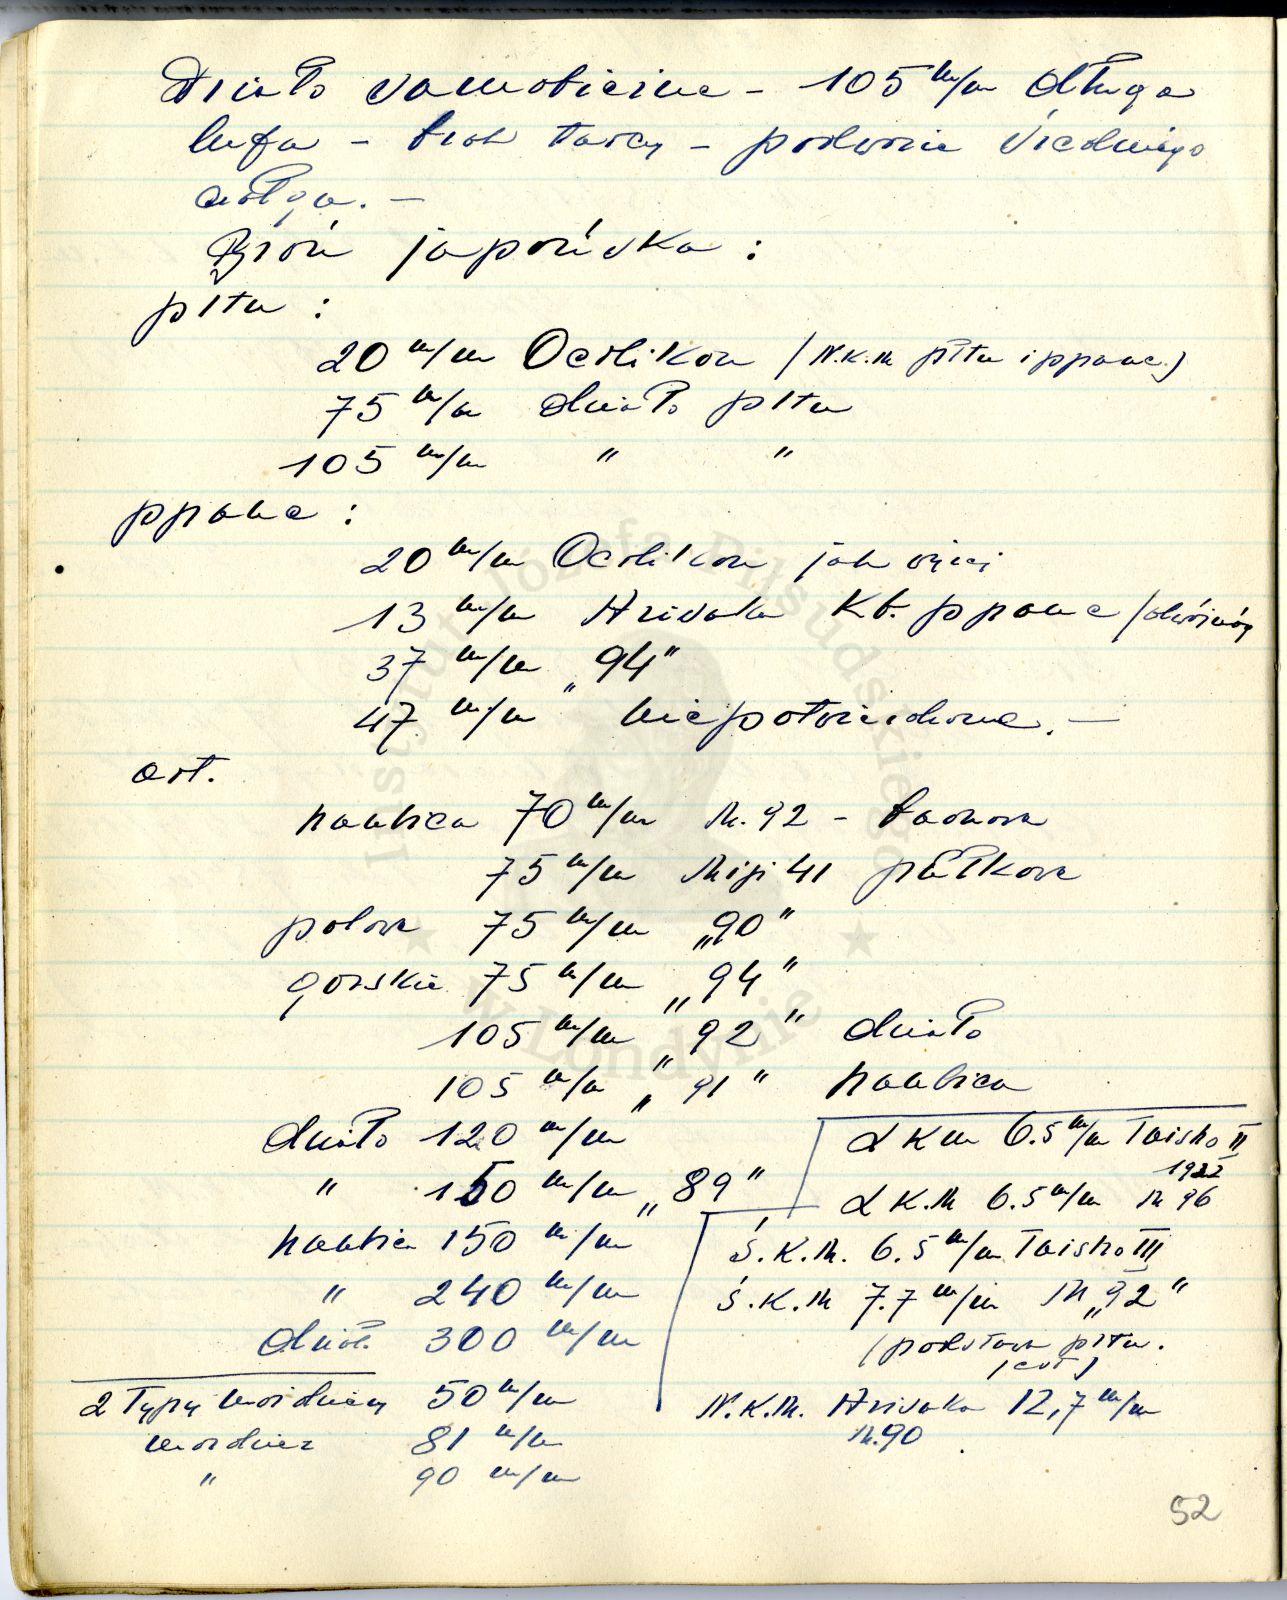 Działo samobieżne - 105 m/m długa
lufa - brak tarczy - podwozie średniego
czołga. -
Broń japońska :
pltn :
20 m/m Oerlikon (N.K.M plтn i ppanc.)
75 m/m działo pltn
105 m/m " "
ppanc :
20 m/m Oerlikon jak wyżej
13 m/m Hrisaka Kb. ppanc
37 m/m „94"
47 m/m " niepotwierdzone. -
art.
haubica 70 m/m M. 92 - baonowa
75 m/m Miji 41 pułkowa
polowa 75 m/m „90"
górskie 75 m/m „94"
105 m/m „92" działo
105 m/m „91" haubica
działo 120 m/m
" 150 m/m „89"
haubica 150 m/m
" 240 m/m
dział. 300 m/m
2 typy moździerzy 50 m/m
moździerz 81 m/m
" 90 m/m
LKm 6.5 m/m Taisho II
1922
L K.M 6.5 m/m M 96
Ś.K.M. 6.5 m/m Taisho III
Ś.K.M 7.7 m/m M „92"
(podstawa pltn.
N.K.M. Hrisaka 12,7 m/m
M.90
52
Instytut Józefa Piłsudskiego
★ w Londynie ★